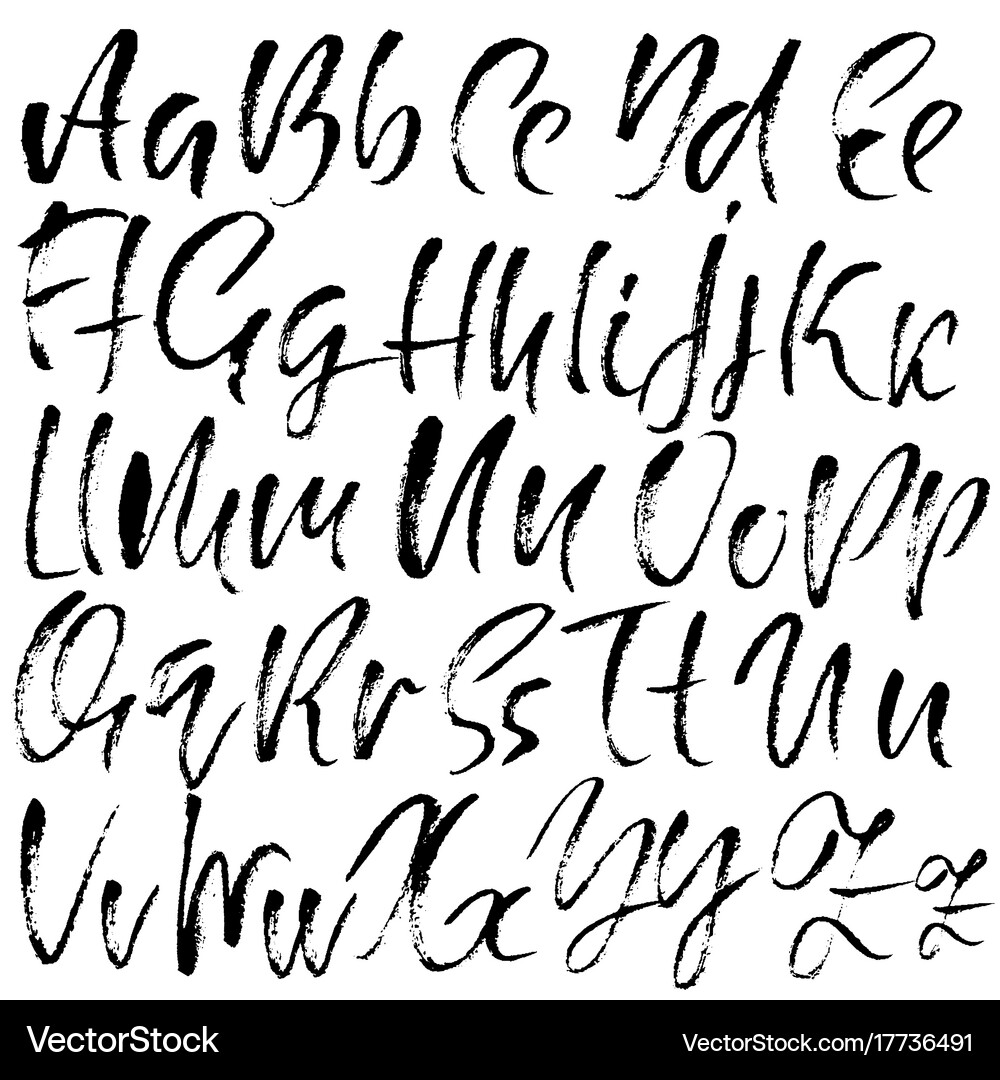 Aa Bb Cc Dd Ee
Ff Gg Hh Ii Jj Kk
Ll Mm Nn Oo Pp
Qq Rr Ss Tt Uu
Vv Ww Xx Yy Zz
VectorStock® VectorStock.com/17736491